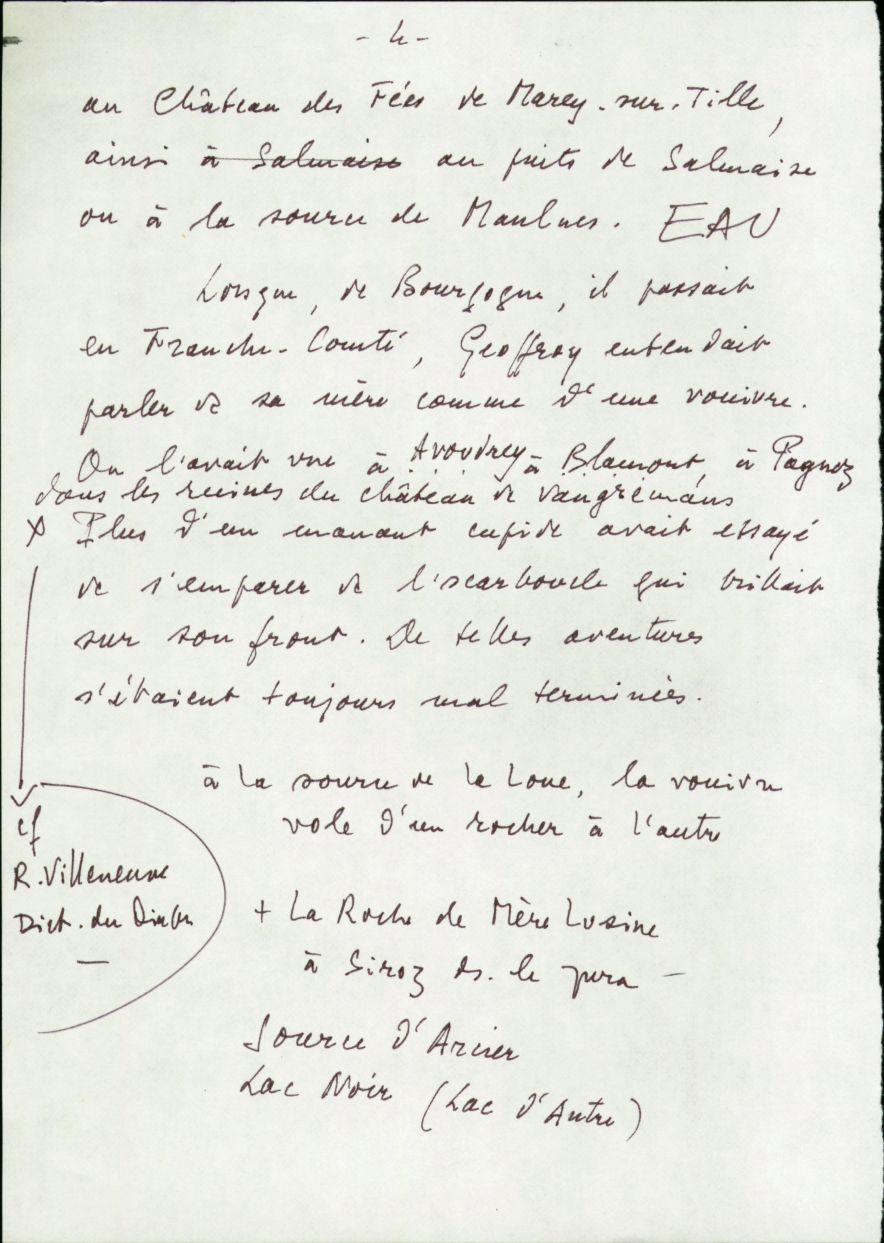 - 4 -
au Château des Fées de Marey-sur-Tille,
ainsi à Salmaise au puits de Salmaise
ou à la source de Maulnes. EAU
Lorsque, de Bourgogne, il passait
en Franche-Comté, Geoffroy entendait
parler de sa mère comme d'une vouivre.
On l'avait vue à Avoudrey à Blamont, à Pagnoz
dans les ruines du château de Vaugrenans
X Plus d'un manant cupide avait essayé
de s'emparer de l'escarboucle qui brillait
sur son front. De telles aventures
s'étaient toujours mal terminées.
à la source de la Loue, la vouivre
vole d'un rocher à l'autre
cf
R. Villeneuve
Dict. du Diable
+ La Roche de Mère Lusine
à Siroz ds. le Jura -
Source d'Arcier
Lac Noir (Lac d'Antre)